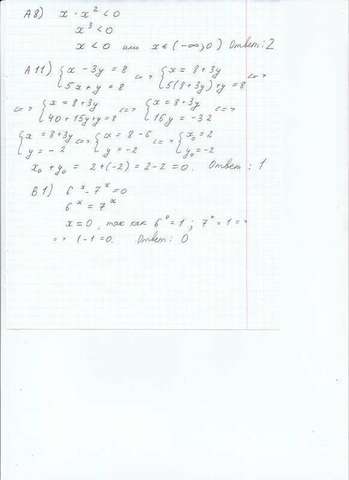 А8) x · x² < 0
x³ < 0
x < 0 или x ∈ (-∞; 0) Ответ: 2
А11) { x - 3y = 8 <=> { x = 8 + 3y <=>
5x + y = 8 5(8 + 3y) + y = 8
<=> { x = 8 + 3y <=> { x = 8 + 3y <=>
40 + 15y + y = 8 16y = -32
{ x = 8 + 3y <=> { x = 8 - 6 <=> { x₀ = 2
y = -2 y = -2 y₀ = -2
x₀ + y₀ = 2 + (-2) = 2 - 2 = 0. Ответ: 1
В.1) 6ˣ - 7ˣ = 0
6ˣ = 7ˣ
x = 0, так как 6⁰ = 1; 7⁰ = 1 =>
=> 1 - 1 = 0. Ответ: 0